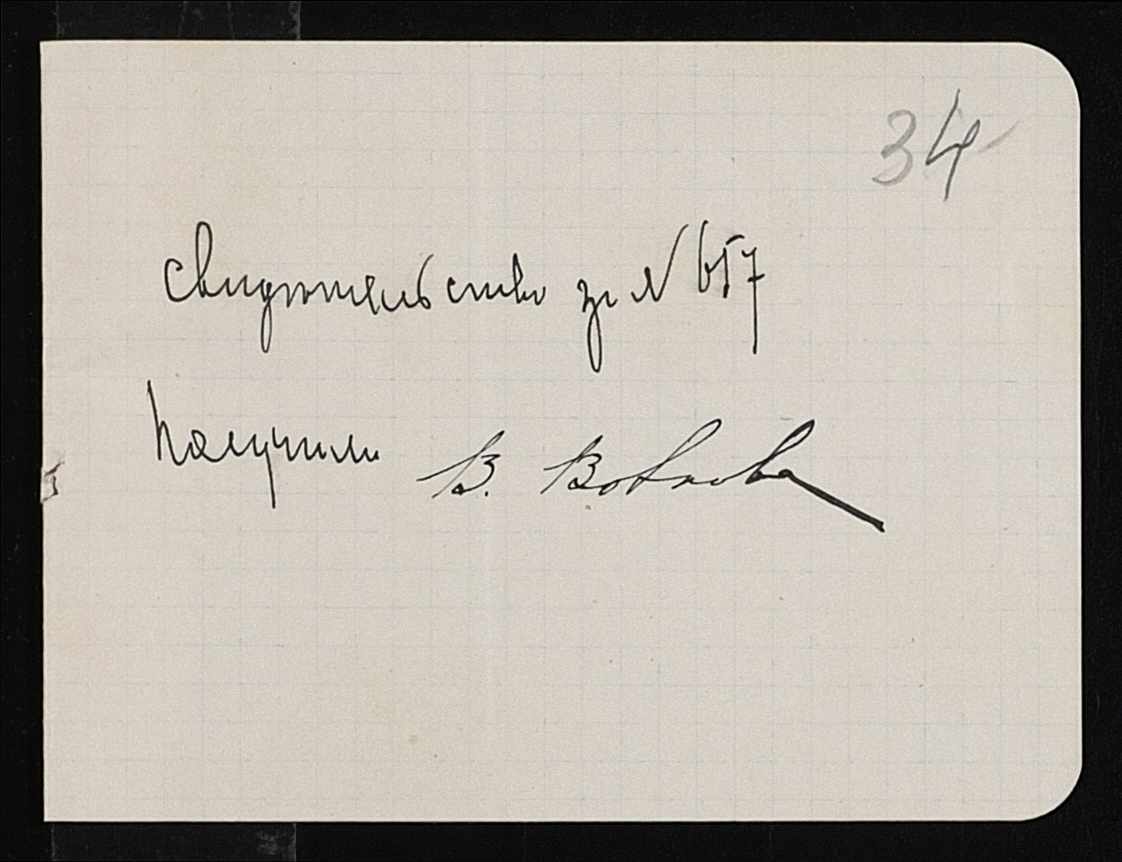 34
Свидѣтельство за № 657
Получила В. Вовкова